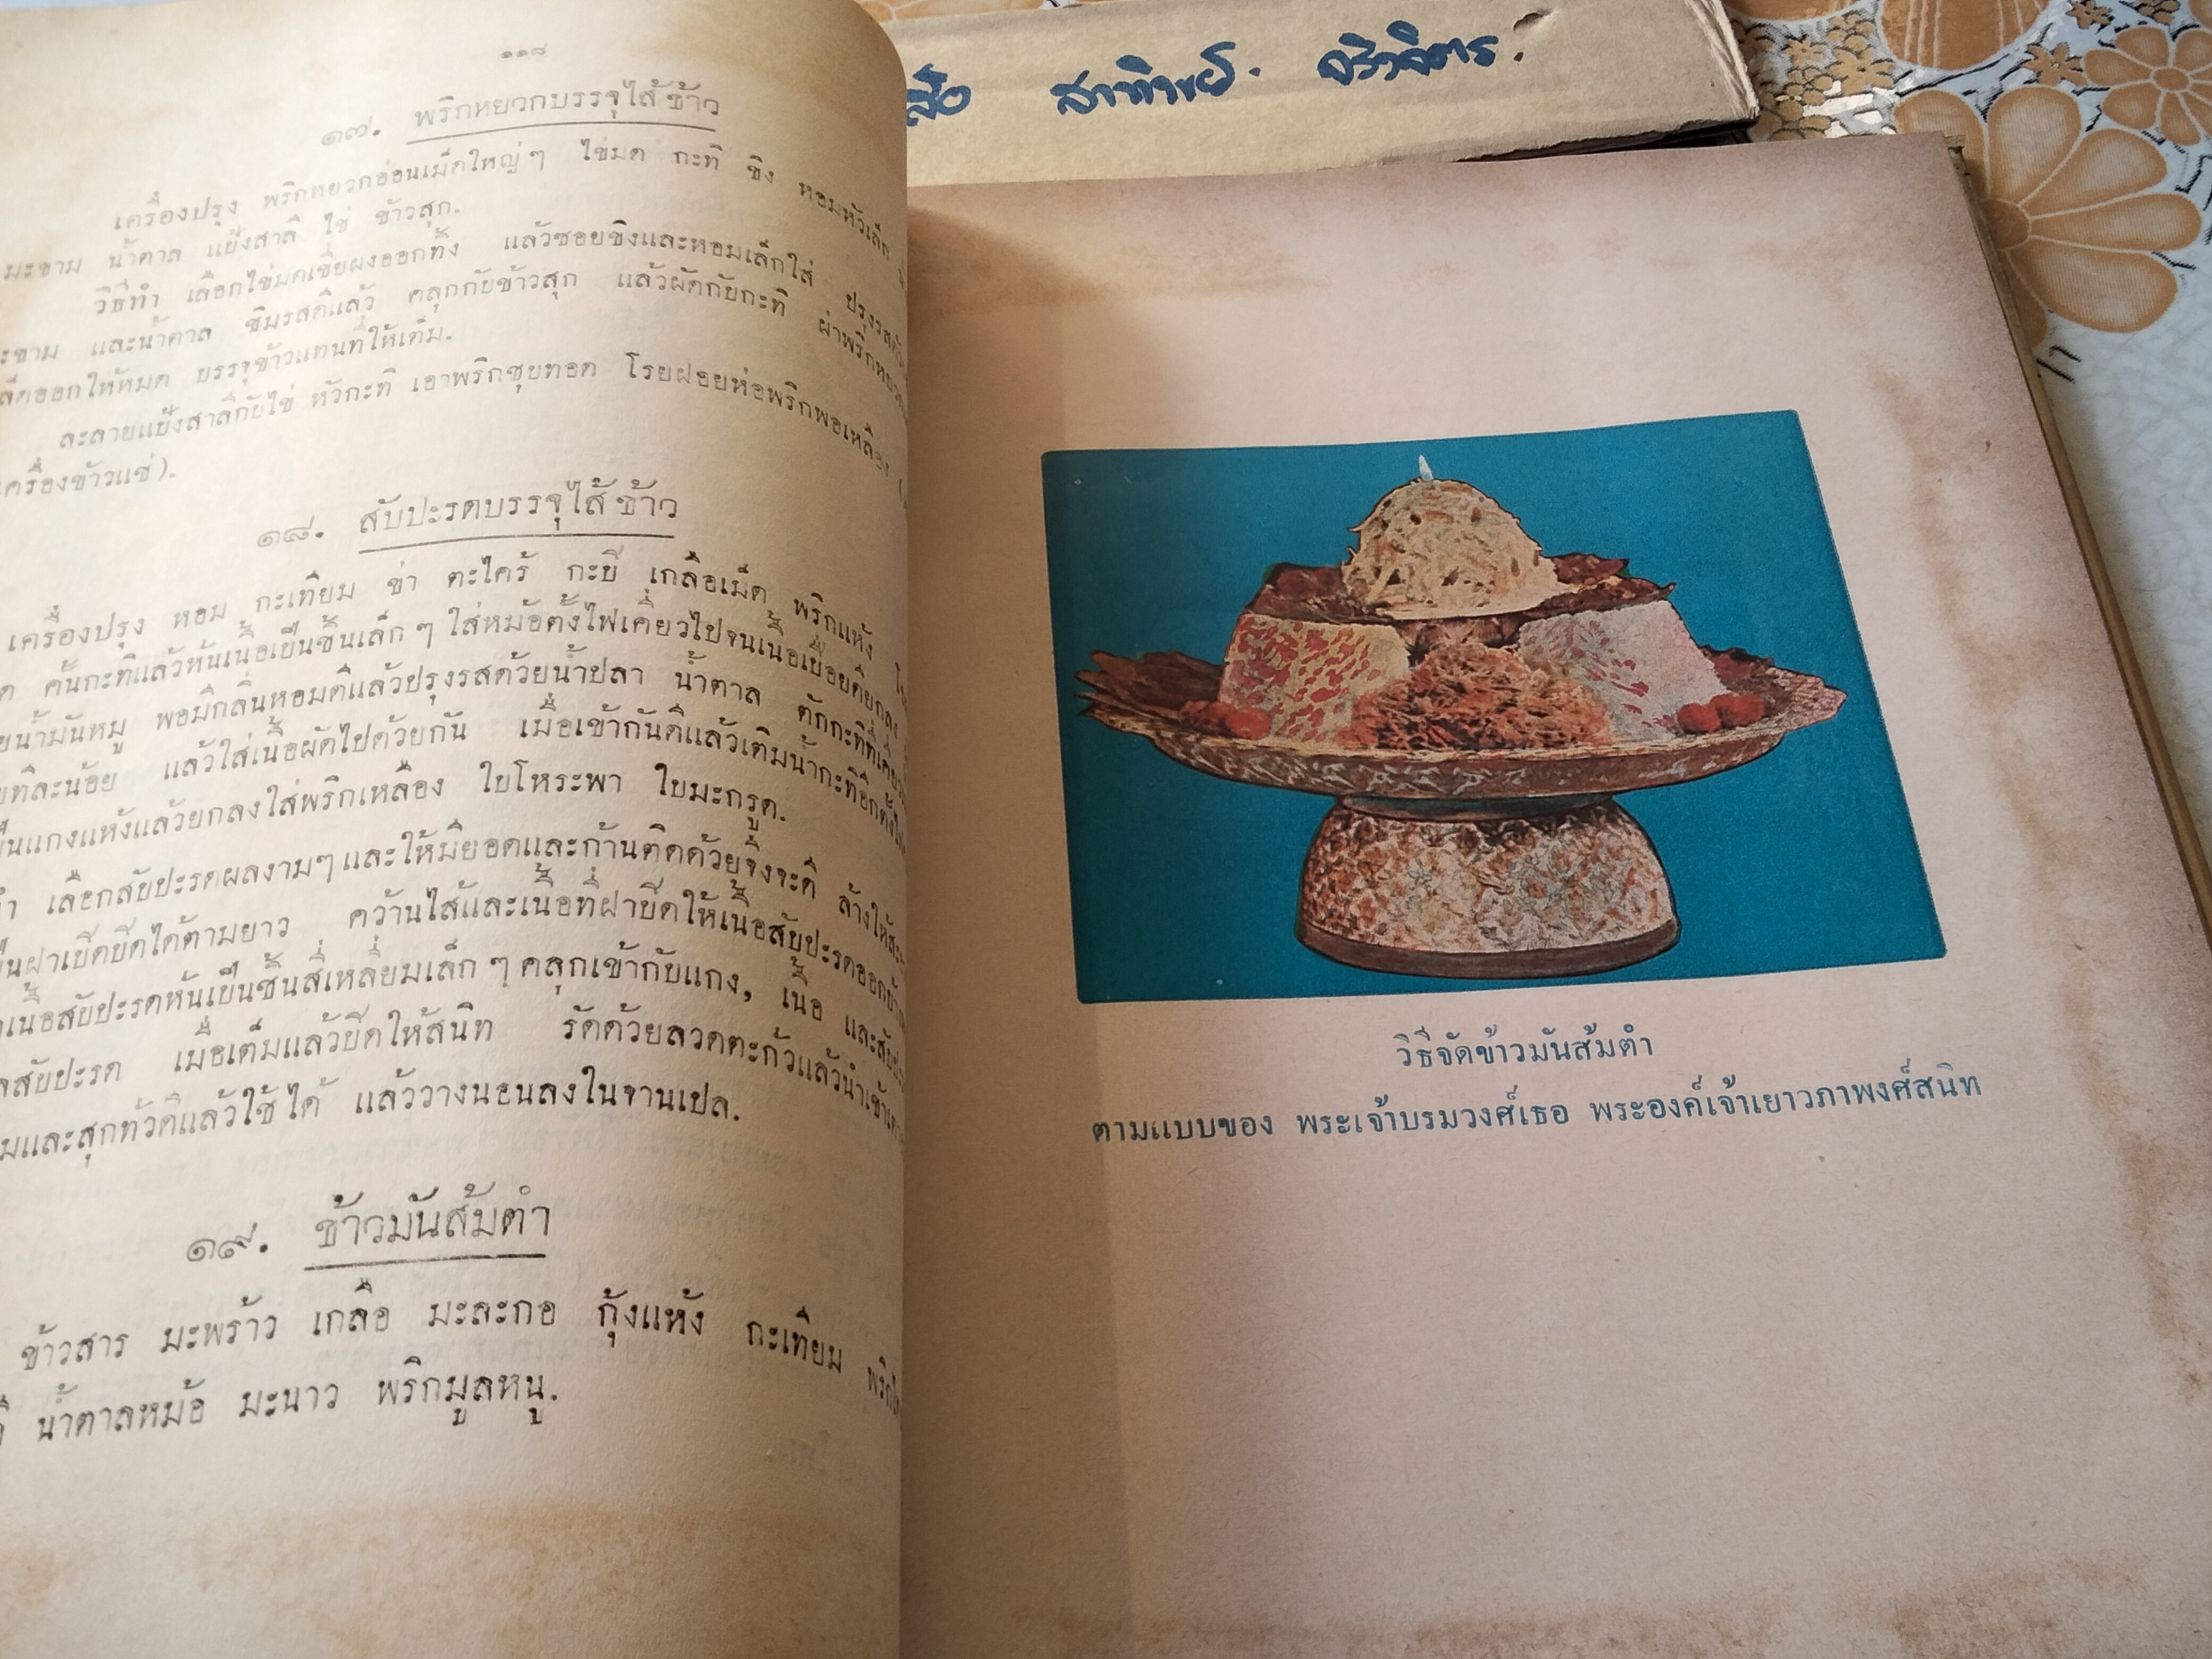 ๑๑๘
๑๗. พริกหยวกบรรจุไส้ข้าว
เครื่องปรุง พริกหยวกอ่อนเม็ดใหญ่ๆ ไข่มด กะทิ ขิง หอมหัวเล็ก
มะขาม น้ำตาล แป้งสาลี ไข่ ข้าวสุก.
วิธีทำ เลือกไข่มดเขี่ยผงออกทิ้ง แล้วซอยขิงและหอมเล็กใส่ ปรุงรสด้วย
และน้ำตาล ชิมรสดีแล้ว คลุกกับข้าวสุก แล้วผัดกับกะทิ ผ่าพริกหยวก
ออกให้หมด บรรจุข้าวแทนที่ให้เต็ม.
ละลายแป้งสาลีกับไข่ หัวกะทิ เอาพริกชุบทอด โรยฝอยห่อพริกพอเหลือง
เครื่องข้าวแช่).
๑๘. สับปะรดบรรจุไส้ข้าว
เครื่องปรุง หอม กะเทียม ข่า ตะไคร้ กะปิ เกลือเม็ด พริกแห้ง
คั้นกะทิแล้วหั่นเนื้อเป็นชิ้นเล็กๆ ใส่หม้อตั้งไฟเคี่ยวไปจนเนื้อเปื่อยดียกลง
น้ำมันหมู พอมีกลิ่นหอมดีแล้วปรุงรสด้วยน้ำปลา น้ำตาล ตักกะทิที่เคี่ยว
ทีละน้อย แล้วใส่เนื้อผัดไปด้วยกัน เมื่อเข้ากันดีแล้วเติมน้ำกะทิอีก
เป็นแกงแห้งแล้วยกลงใส่พริกเหลือง ใบโหระพา ใบมะกรูด.
เลือกสับปะรดผลงามๆ และให้มียอดและก้านติดด้วยจึงจะดี ล้างให้
เป็นฝาเปิดปิดได้ตามยาว คว้านไส้และเนื้อที่ฝาปิดให้เนื้อสับปะรดออก
เนื้อสับปะรดหั่นเป็นชิ้นสี่เหลี่ยมเล็กๆ คลุกเข้ากับแกง, เนื้อ และ
สับปะรด เมื่อเต็มแล้วปิดให้สนิท รัดด้วยลวดตะกั่วแล้วนำเข้า
และสุกทั่วดีแล้วใช้ได้ แล้ววางนอนลงในจานเปล.
๑๙. ข้าวมันส้มตำ
ข้าวสาร มะพร้าว เกลือ มะละกอ กุ้งแห้ง กะเทียม
น้ำตาลหม้อ มะนาว พริกมูลหนู.
วิธีจัดข้าวมันส้มตำ
ตามแบบของ พระเจ้าบรมวงศ์เธอ พระองค์เจ้าเยาวภาพงศ์สนิท